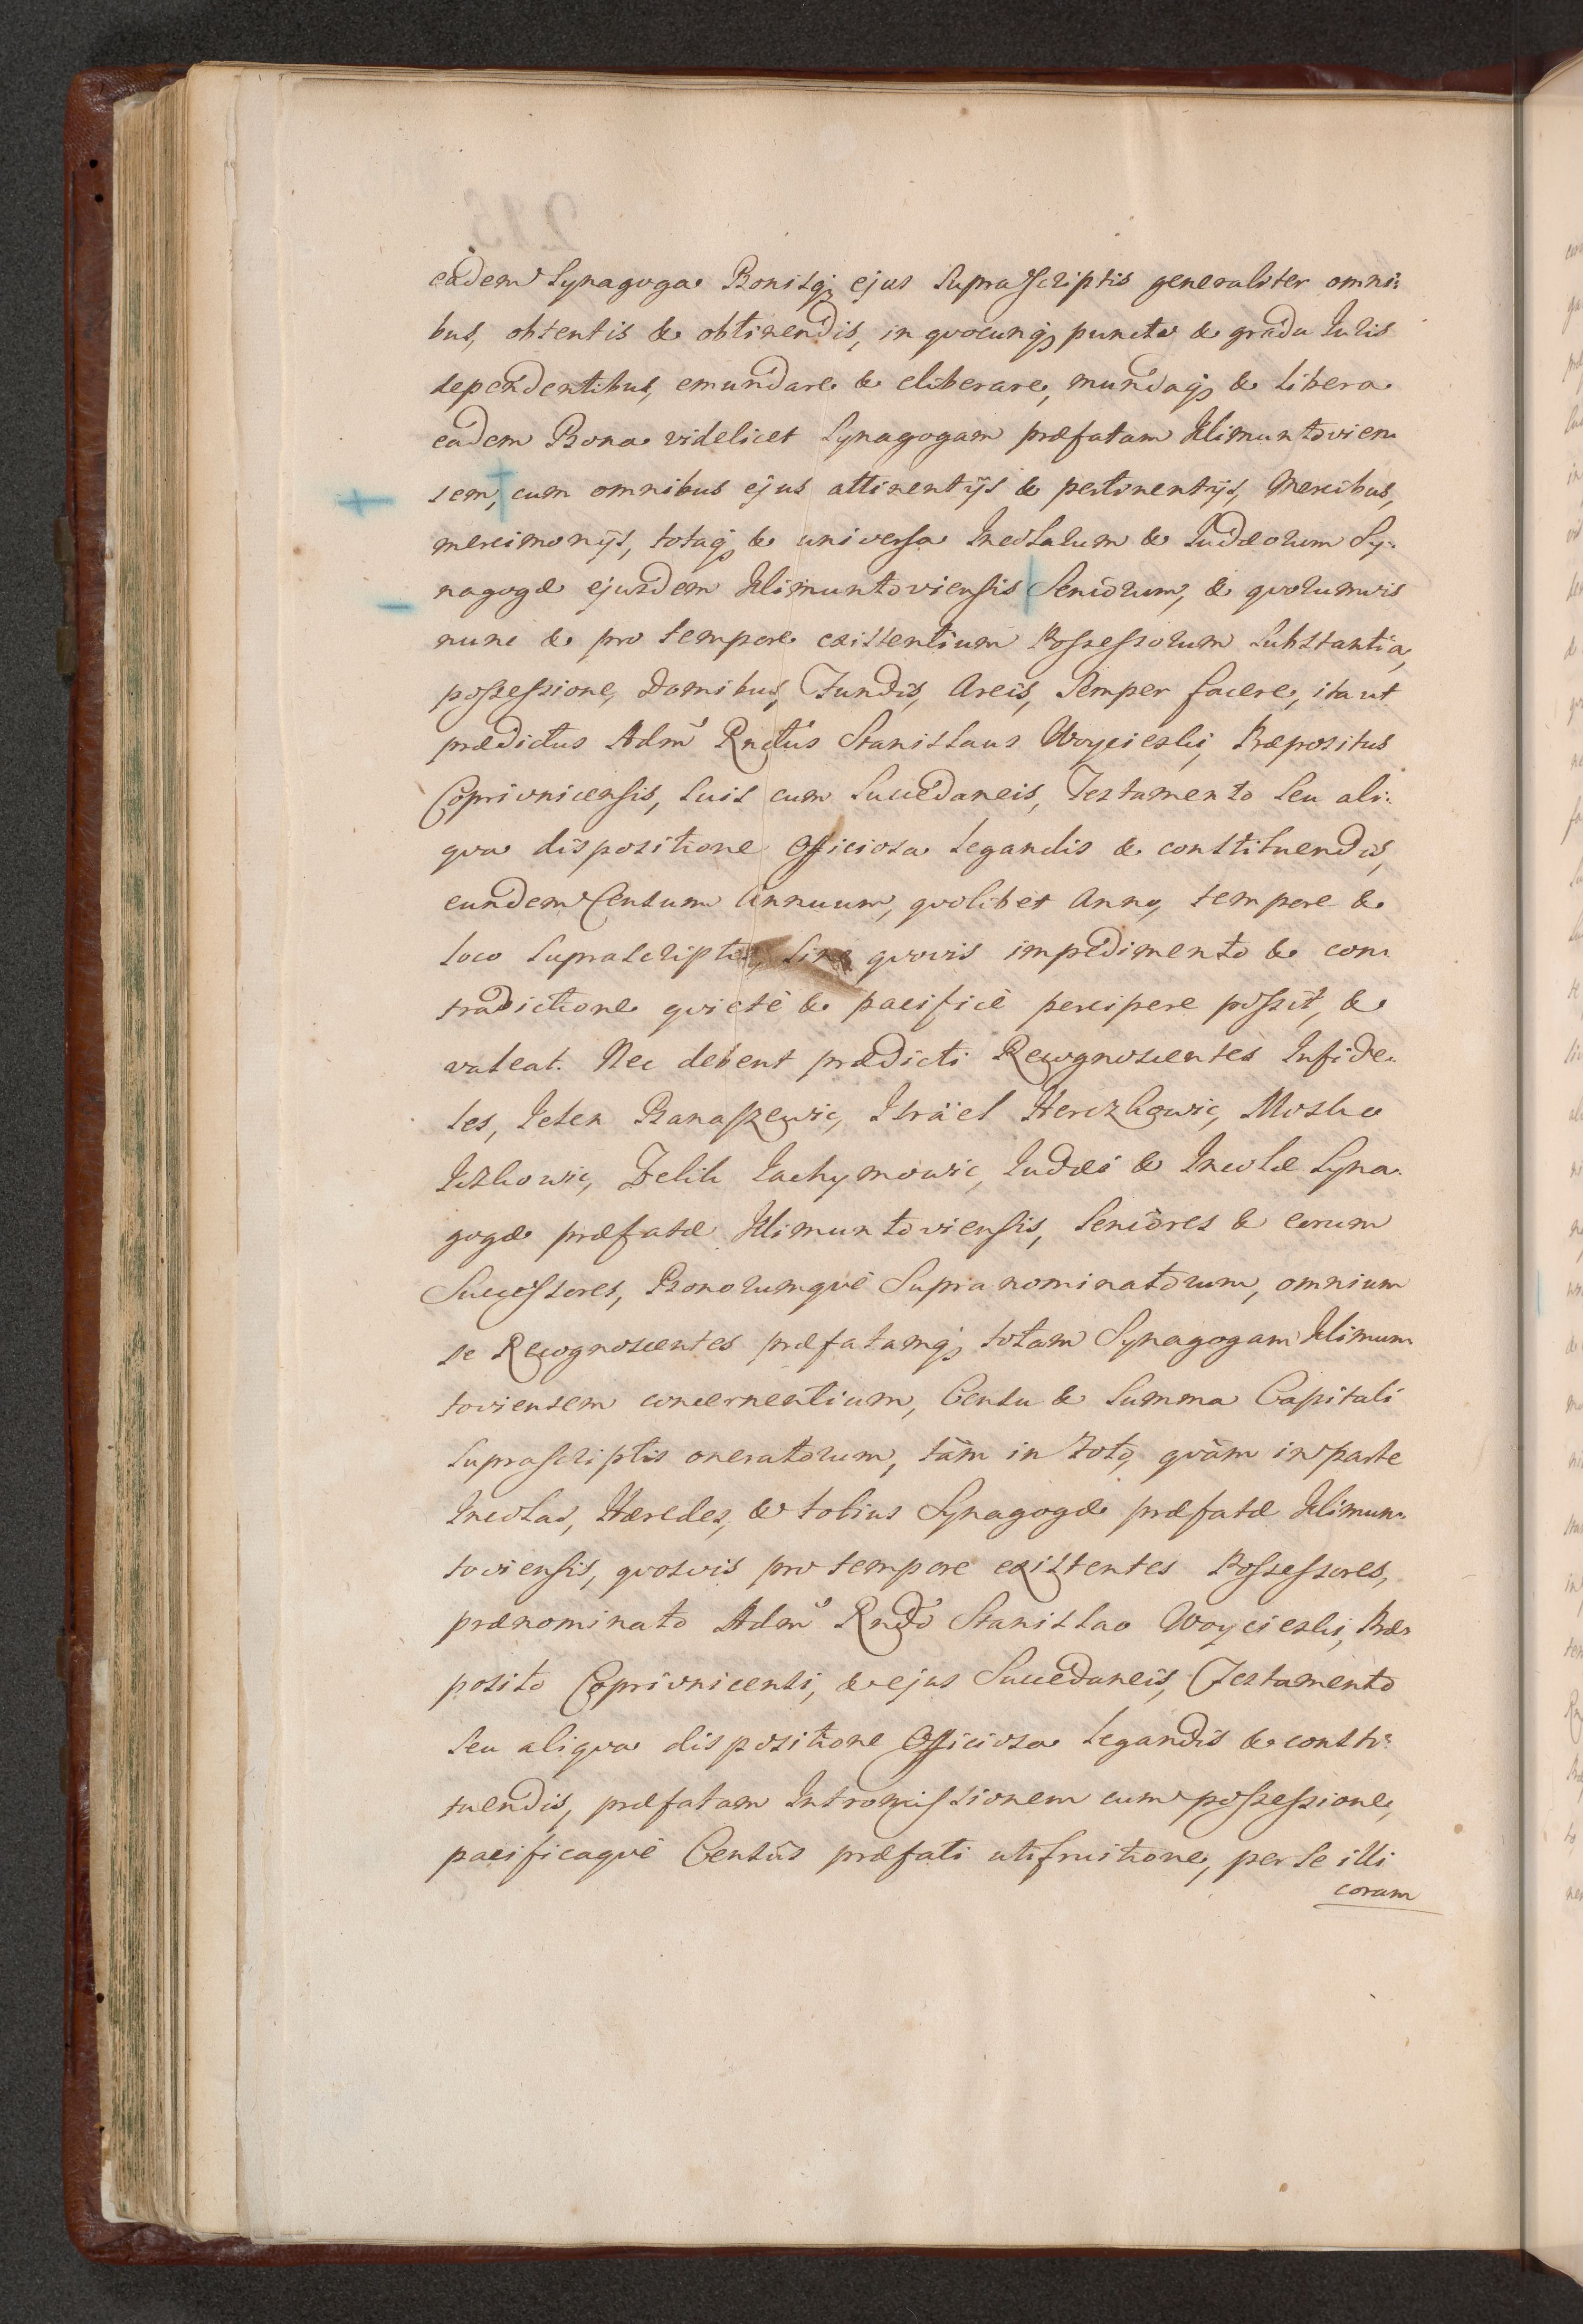 eadem Synagoga Bonisq; ejus supra scriptis generaliter omni:
bus, obtentis & obtinendis, in qvocunq; puncto & gradu Iuris
dependentibus, emundare & eliberare, mundaq; & libera
eadem Bona videlicet Synagogam præfatam Klimuntovien
sem, cum omnibus ejus attinentijs & pertinentijs, Mercibus,
mercimonijs, totaq; & universa Incolarum & Iudæorum Sy:
nagogæ ejusdem Klimuntoviensis Seniorum, & qvorumvis
nunc & pro tempore existentium Possessorum substantia,
possessione, Domibus, Fundis, Areis, semper facere, ita ut
prædictus Adm̃ Rndus Stanislaus Woycieski, Præpositus
Coprivnicensis, suis cum Succedaneis, Testamento seu ali:
qva dispositione Officiosa legandis & constituendis,
eundem Censum Annuum, qvolibet Anno, tempore &
loco suprascriptis, sine qvovis impedimento & con
tradictione qvietè & pacificè percipere possit, &
valeat. Nec debent prædicti Recognoscentes Infide
les, Ielen Banaszewic, Isräel Herczkowic, Mosko
Iczkowic, Felik Iachymowic, Iudæi & Incolæ Syna
gogæ præfatæ Klimuntoviensis, Seniores & eorum
Successores, Bonorumqvè Supra nominatorum, omnium
se Recognoscentes præfatamq; totam Synagogam Klimun
toviensem concernentium, Censu & Summa Capitali
suprascriptis oneratorum, tàm in toto, qvàm in parte
Incolas, Hæredes, & totius Synagogæ præfatæ Klimun
toviensis, qvosvis pro tempore existentes Possessores,
prænominato Adm̃ Rndo Stanislao Woycieski, Præ
posito Coprivnicensi, & ejus Succedaneis, Testamento
seu aliqva dispositione Officiosa legandis & consti:
tuendis, præfatam Intromissionem cum possessione,
pacificaqvè Censûs præfati utifruitione, per se illi
coram